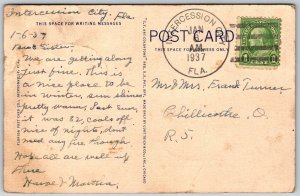 Intercession City, Fla.
THIS SPACE FOR WRITING MESSAGES
1-6-37
Dear Sister:
We are getting along
just fine. This is
a nice place to be
in winter, sun shines
pretty warm, Last Sun.
it was 82, cools off
nice of nights, dont
need any fire though
Hope all are well up
there
Harve & Martha
POST CARD
THIS SPACE IS FOR ADDRESS ONLY
INTERCESSION
JAN
A.M.
1937
FLA.
Mr & Mrs. Frank Turner
Chillicothe, O.
R. 5.